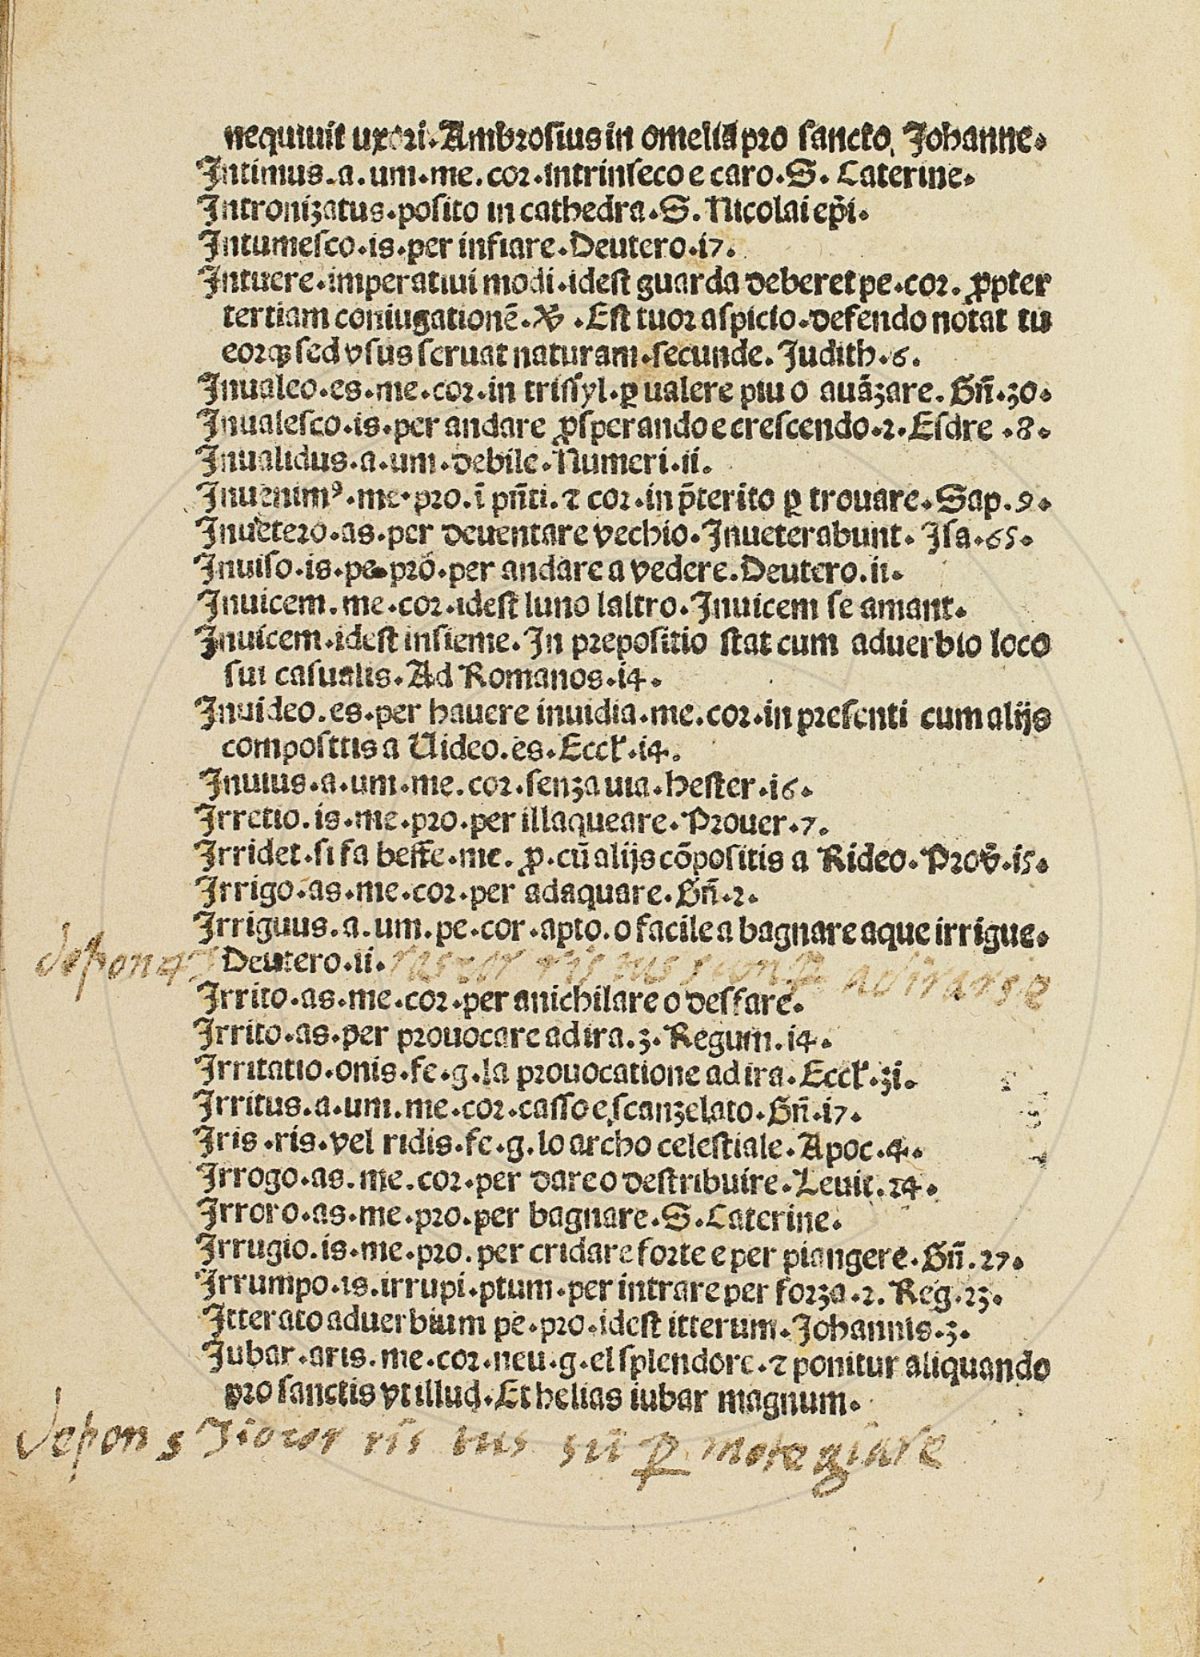 nequiuit uxori.Ambrosius in omelia pro sancto Johanne.
Intimus.a.um.me.cor.intrinseco e caro.S. Caterine.
Intronizatus.posito in cathedra.S. Nicolai ep̄i.
Intumesco.is.per infiare.Deutero.i7.
Intuere.imperatiui modi.idest guarda deberet pe.cor. ꝓpter
tertiam coniugationē. .Est tuor aspicio.defendo notat tu
eorqꝫ sed vsus seruat naturam.secunde. Judith.6.
Inualeo.es.me.cor.in trissyl.ꝑ ualere piu o auāzare. Gn̄.30.
Inualesco.is.per andare ꝓsperando e crescendo.2.Esdre .8.
Inualidus.a.um.debile.Numeri.ii.
Inuenimꝰ.me.pro.ī pn̄ti.⁊ cor.in p̄terito ꝑ trouare.Sap.9.
Inuetero.as.per deuentare vechio.Inueterabunt. Isa.65.
Inuiso.is.pe.pro.per andare a vedere.Deutero.ii.
Inuicem.me.cor.idest luno laltro.Inuicem se amant.
Inuicem.idest insieme. In prepositio stat cum aduerbio loco
sui casualis.Ad Romanos.i4.
Inuideo.es.per hauere inuidia.me.cor.in presenti cum alijs
composttis a Uideo.es.Eccł.i4.
Inuius.a.um.me.cor.senza uia.Hester.i6.
Irretio.is.me.pro.per illaqueare.Prouer.7.
Irridet.si fa beffe.me. ꝓ.cū alijs cōpositis a Rideo.Prov̄.i5.
Irrigo.as.me.cor.per adaquare.Gn̄.2.
Irriguus.a.um.pe.cor.apto.o facile a bagnare aque irrigue.
depon Deutero.ii. ris tus adirarse
Irrito.as.me.cor.per anichilare o desfare.
Irrito.as.per prouocare ad ira.3.Regum.i4.
Irritatio.onis.fe.g.la prouocatione ad ira.Eccł.3i.
Irritus.a.um.me.cor.casso e scanzelato.Gn̄.i7.
Iris.ris.vel ridis.fe.g.lo archo celestiale.Apoc.4.
Irrogo.as.me.cor.per dare o destribuire.Leuit.24.
Irroro.as.me.pro.per bagnare.S.Caterine.
Irrugio.is.me.pro.per cridare forte e per piangere.Gn̄.27.
Irrumpo.is.irrupi.ptum.per intrare per forza.2.Reg.23.
Itterato aduerbium pe.pro.idest itterum.Johannis.3.
Iubar.aris.me.cor.neu.g.el splendore.⁊ ponitur aliquando
pro sanctis vt illud.Et helias iubar magnum.
depon s ris tus sū ꝑ motegiare